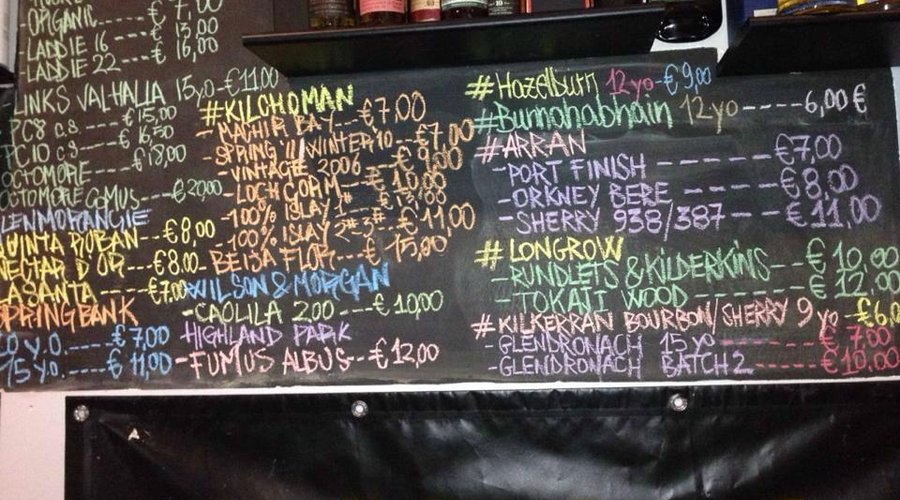 ORGANIC --- € 7,00
- LADDIE 16 --- € 13,00
- LADDIE 22 --- € 16,00
LINKS VALHALLA 15yo -€ 11.00
PC8 cs --- € 15,00
PC10 cs --- € 16,50
OCTOMORE --- € 18,00
OCTOMORE COMUS --- € 20.00
LENMORANGIE
UINTA RUBAN --- € 8,00
NECTAR D'OR --- € 8.00
LASANTA --- € 7,00
SPRINGBANK
10 y.o. ---- € 7,00
15 y.o. ---- € 11,00
# KILCHOMAN
- MACHIR BAY --- € 7,00
- SPRING // WINTER'10 -- € 7,00
- VINTAGE 2006 --- € 9,00
- LOCH GORM --- € 10,00
- 100% ISLAY 1° ---
- 100% ISLAY 2°-3° -- € 11,00
BEIJA FLOR --- € 15,00
WILSON & MORGAN
- CAOLILA 200 --- € 10,00
HIGHLAND PARK
- FUMUS ALBUS -- € 12,00
# Hazelburn 12 yo - € 9,00
# Bunnahabhain 12 yo ---- 6,00 €
# ARRAN
- PORT FINISH ------ € 7,00
- ORKNEY BERE ----- € 8,00
- SHERRY 938/387 --- € 11,00
# LONGROW
- RUNDLETS & KILDERKINS --- € 10,00
- TOKAJI WOOD ------- € 12,00
# KILKERRAN BOURBON/SHERRY 9 yo -- € 6,0
- GLENDRONACH 15 yo ------- € 7,00
- GLENDRONACH BATCH 2 ----- € 10,00